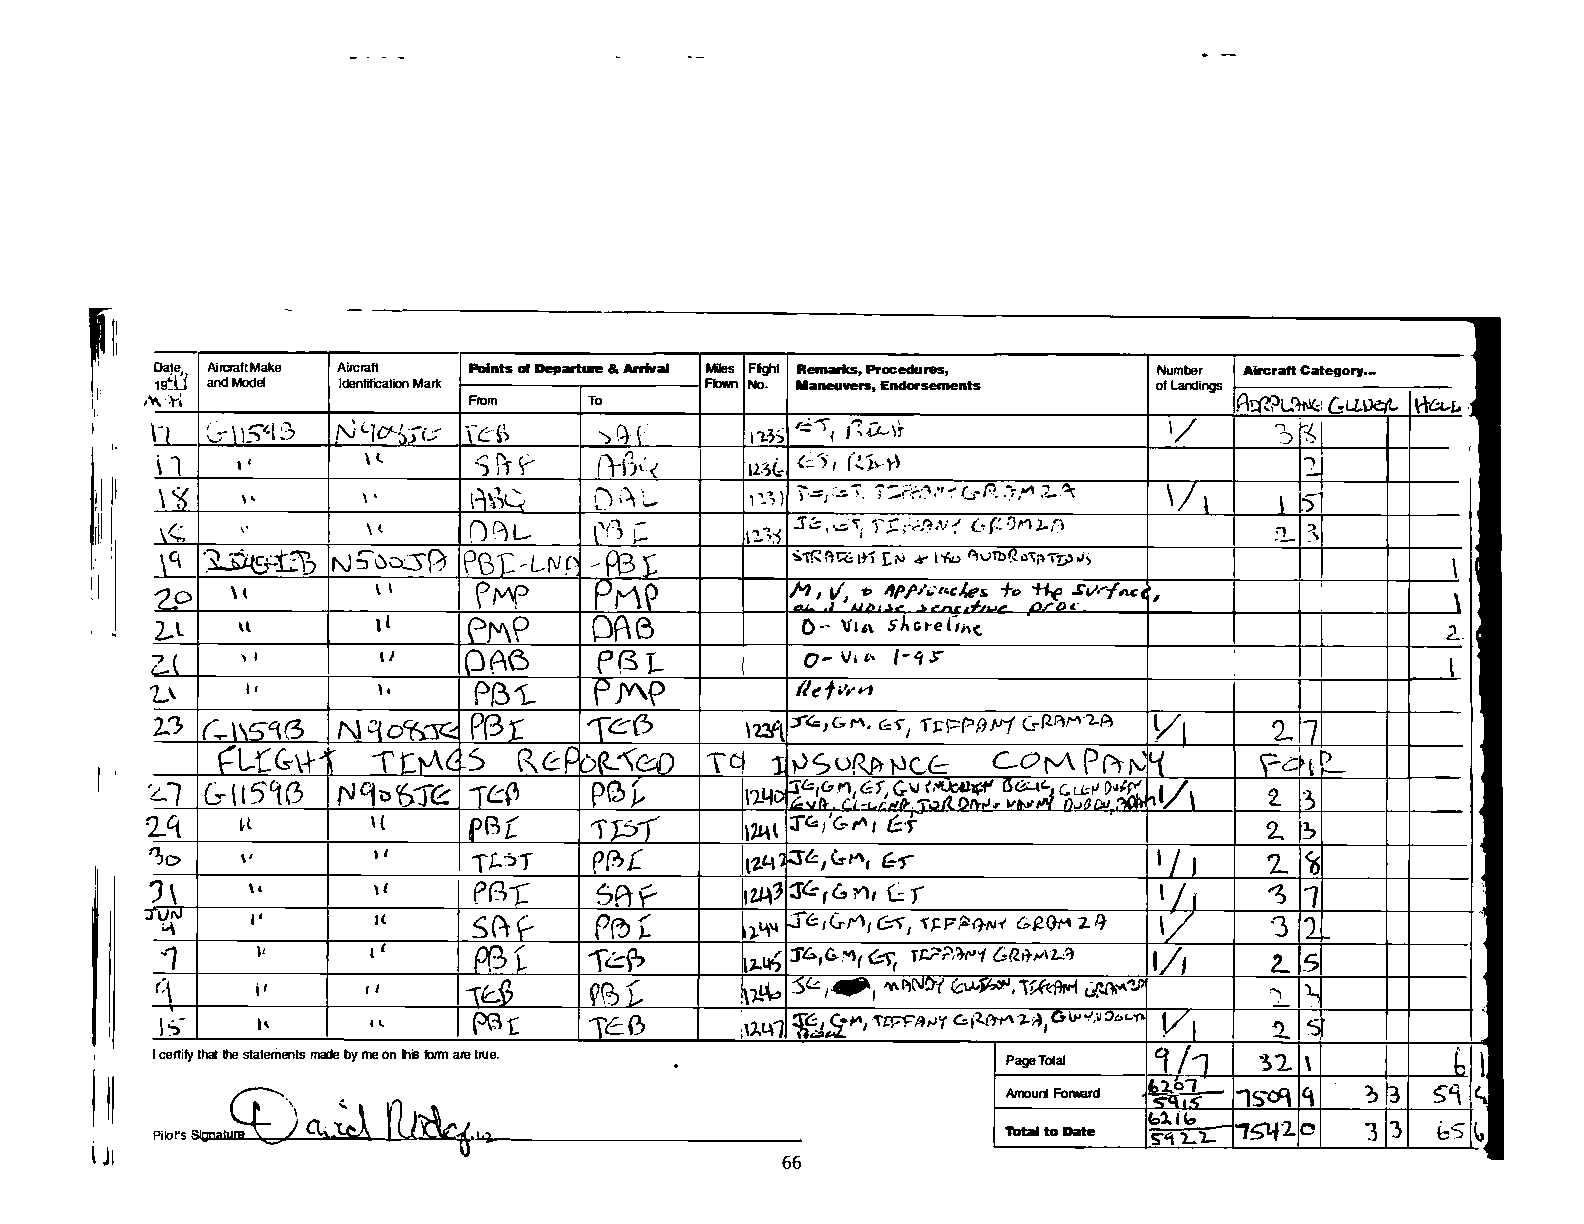 Date Aircraft Make and Model Aircraft Identification Mark Points of Departure & Arrival Miles Flown Flight No. Remarks, Procedures, Maneuvers, Endorsements Number of Landings Aircraft Category...
19 From To AIRPLANE GLIDER HELI
17 G1159B N908JE TEB SAF 1235 ET, RICH 1/ 3 8
17 " " SAF ABQ 1236 ET, RICH 2
18 " " ABQ DAL 1237 JE, ET, TIFFANY GRAMZA 1/1 1 5
" " DAL PBI 1238 JE, ET, TIFFANY GRAMZA 2 3
19 N500JA PBI-LNA-PBI STRAIGHT IN + 180 AUTOROTATIONS 1
20 " " PMP PMP M, V, o APProaches to the Surface, and Noise sensitive proc. 1
21 " " PMP DAB O- Via Shoreline 2
21 " " DAB PBI O- Via I-95 1
21 " " PBI PMP Return
23 G1159B N908JE PBI TEB 1239 JE, GM, ET, TIFFANY GRAMZA 1/1 2 7
FLIGHT TIMES REPORTED TO INSURANCE COMPANY
27 G1159B N908JE TEB PBI 1240 JE, GM, ET, 1/1 2 3
29 " " PBI TIST 1241 JE, GM, ET 2 3
30 " " TIST PBI 1242 JE, GM, ET 1/1 2 8
31 " " PBI SAF 1243 JE, GM, ET 1/1 3 7
JUN 4 " " SAF PBI 1244 JE, GM, ET, TIFFANY GRAMZA 1/ 3 2
7 " " PBI TEB 1245 JE, GM, ET, TIFFANY GRAMZA 1/1 2 5
9 " " TEB PBI 1246 JE, , MANDY , TIFFANY GRAMZA 2
15 " " PBI TEB 1247 JE, GM, TIFFANY GRAMZA, 1/1 2 5
I certify that the statements made by me on this form are true. Page Total 9/7 32 1 6 1
Amount Forward 6207 5915 7509 9 3 3 59
Pilot's Signature David Rodgers Total to Date 6216 5922 7542 0 3 3 65 6
66